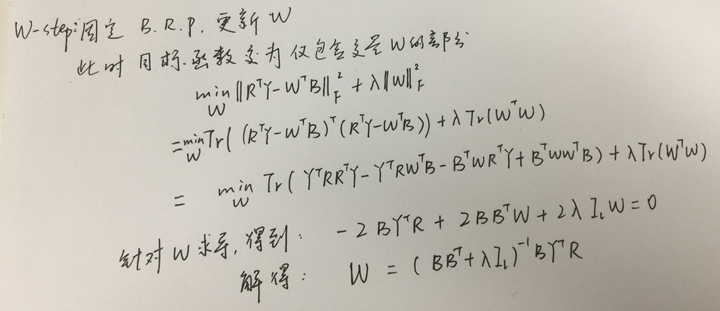 W-step: 固定 B.R.P. 更新 W
此时目标函数变为仅包含变量W的部分
min_W ‖RᵀY-WᵀB‖²_F + λ‖W‖²_F
= min_W Tr( (RᵀY-WᵀB)ᵀ(RᵀY-WᵀB) ) + λTr(WᵀW)
= min_W Tr( YᵀRRᵀY - YᵀRWᵀB - BᵀWRᵀY + BᵀWWᵀB ) + λTr(WᵀW)
针对W求导,得到: -2BYᵀR + 2BBᵀW + 2λI_LW = 0
解得: W = (BBᵀ+λI_L)⁻¹BYᵀR